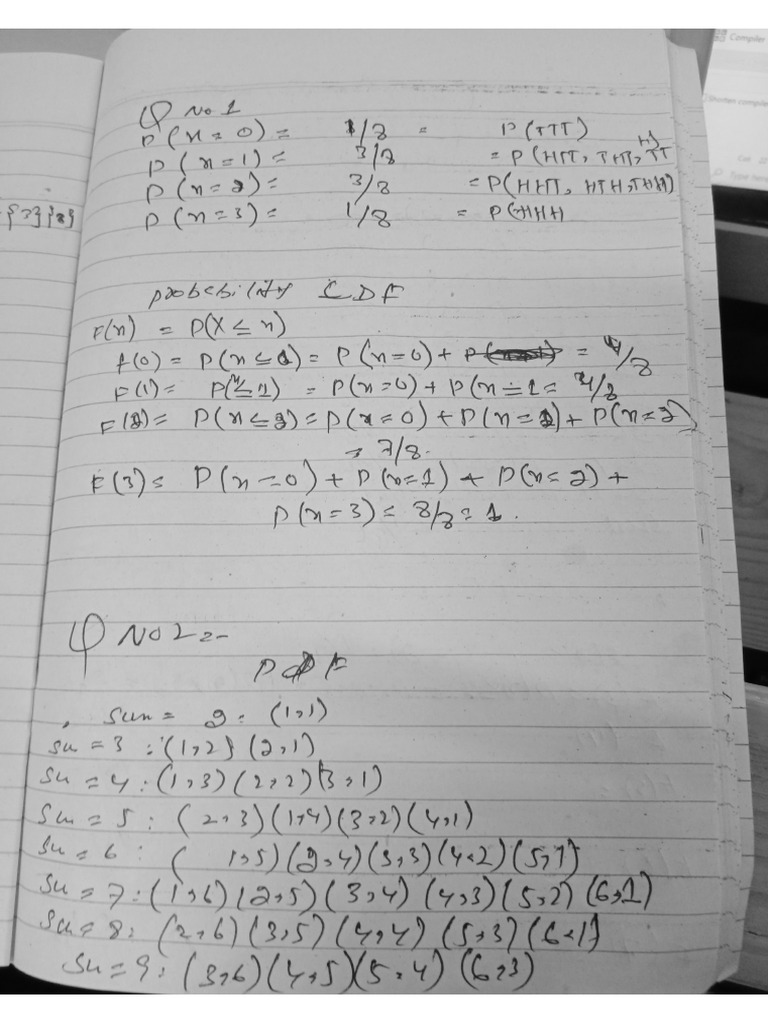 Compiler
{3}{2}
Q No 1
P(x = 0) = 1/8 = P(TTT)
P(x = 1) = 3/8 = P(HTT, THT, TTH)
P(x = 2) = 3/8 = P(HHT, HTH, THH)
P(x = 3) = 1/8 = P(HHH)
probebility CDF
F(x) = P(X ≤ x)
f(0) = P(x ≤ 0) = P(x = 0) + = 1/8
F(1) = P(x ≤ 1) = P(x = 0) + P(x = 1 = 4/8
F(2) = P(x ≤ 2) = P(x = 0) + P(x = 1) + P(x = 2)
= 7/8.
F(3) = P(x = 0) + P(x = 1) + P(x = 2) +
P(x = 3) = 8/8 = 1.
Q No 2 =-
PDF
Sum = 2 : (1,1)
Su = 3 : (1,2) (2,1)
Su = 4 : (1,3) (2,2) (3,1)
Su = 5 : (2,3) (1,4) (3,2) (4,1)
Su = 6 : (1,5) (2,4) (3,3) (4,2) (5,1)
Su = 7 : (1,6) (2,5) (3,4) (4,3) (5,2) (6,1)
Su = 8 : (2,6) (3,5) (4,4) (5,3) (6,1)
Su = 9 : (3,6) (4,5) (5,4) (6,3)